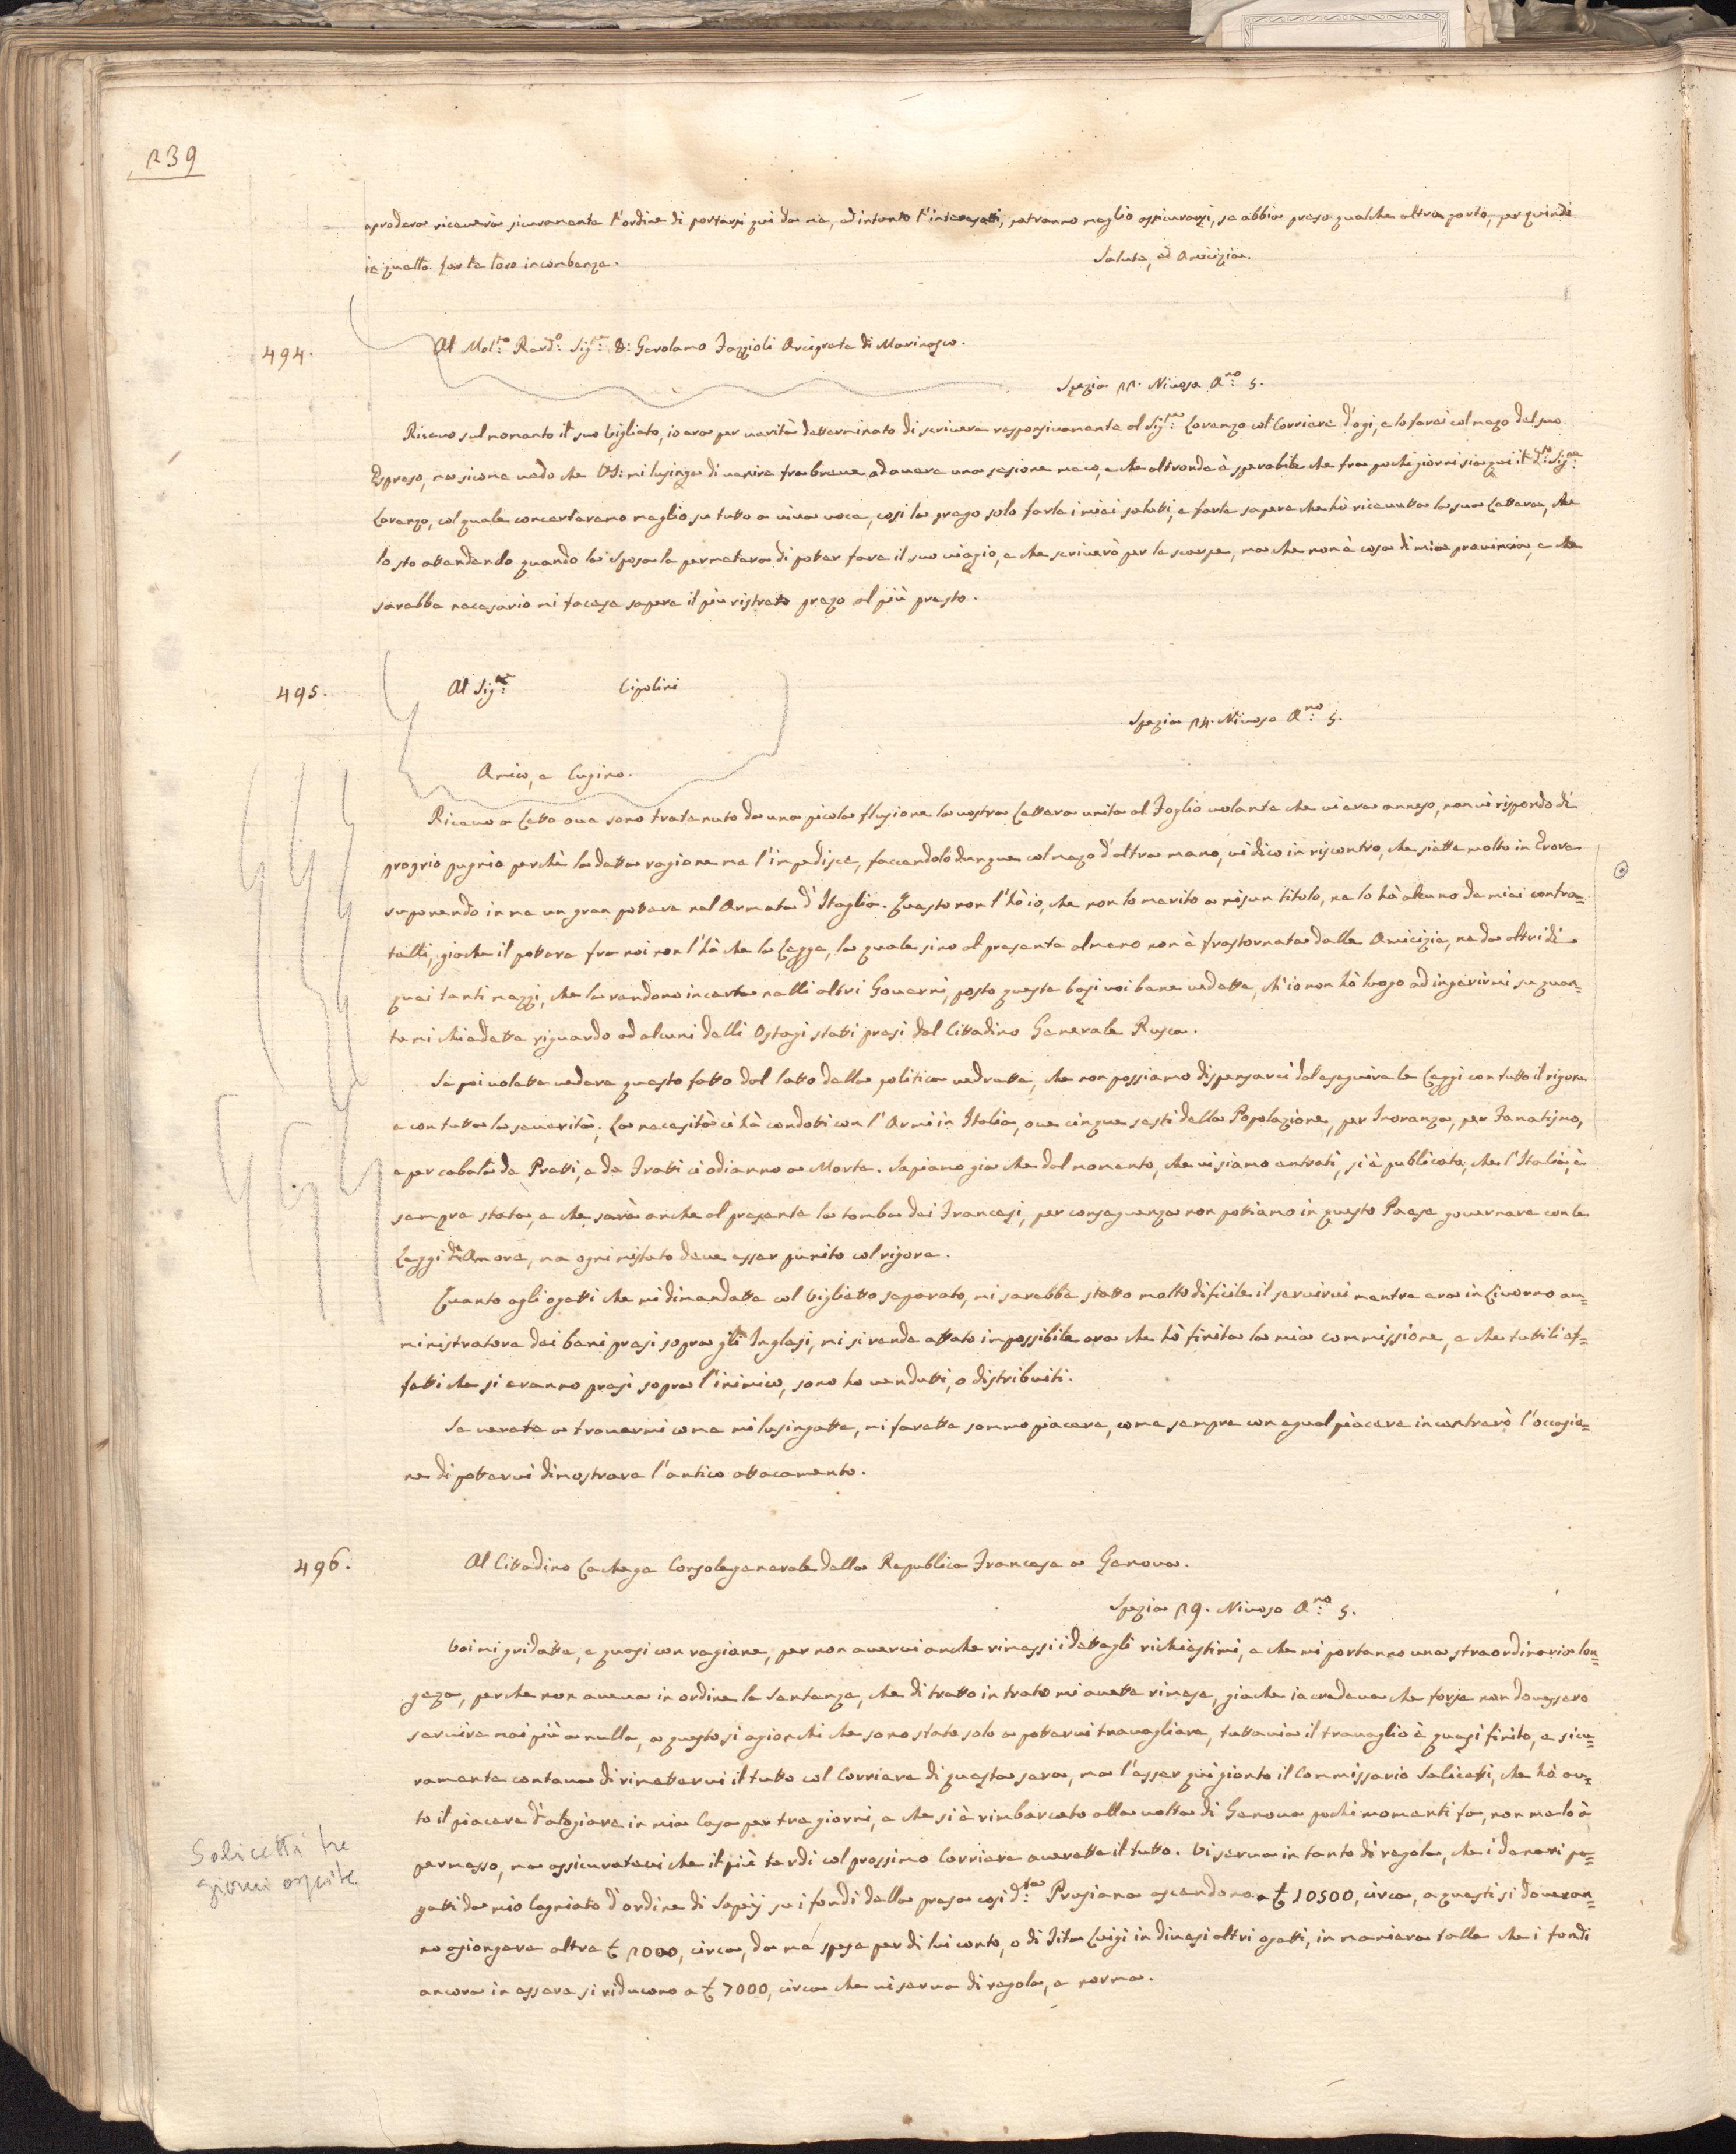 139
aprodera riceverà sicuramente l'ordine di portarsi qui da me, ed intanto l'interesatti, potranno meglio assicurarsi, se abbia preso qualche altro porto, per quindi
in quello far le loro incombenze. Salute, ed Amicizia.
494. Al Mol:to Rerd:o Sig:r D: Gerolamo Fazzioli Arciprete di Marinasco.
Spezia 11. Nivoso A:no 5.
Ricevo sul momento il suo biglieto, io ero per verità detterminato di scrivere responsivamente al Sig:re Lorenzo col Corriere d'ogi, e lo farei col mezo del suo
Espreso, ma sicome vedo che VS: mi lusinga di venire fra breve ad avere una sesione meco, e che altronde è sperabile che fra pochi giorni sia qui il d:to Sig:re
Lorenzo, col quale concerteremo meglio su tutto a viva voce, così la prego solo farle i miei salutti, e farle sapere che hò ricevutta la sua Lettera, che
lo sto attendendo quando la Sposa la permetera di poter fare il suo viagio, e che scriverò per le scarpe, ma che non è cosa di mia provincia, e che
sarebbe necesario mi facese sapere il più ristreto prezo al più presto.
495. Al Sig:re Cipolini
Spezia 14. Nivoso A:no 5.
Amico, e Cugino.
Ricevo a Letto ove sono tratenuto da una picola flusione la vostra Lettera unita al Foglio volante che vi era anneso, non vi rispondo di
proprio pugnio perchè la detta ragione me l'impedisce, faccendolo dunque col mezo d'altra mano, vi dico in riscontro, che siette molto in Erore
suponendo in me un gran potere nel Armata d'Itaglia. Questo non l'hò io, che non lo merito a nisun titolo, ne lo hà alcuno de miei contra=
telli, gioche il potere fra noi non l'hà che la Legge, la quale sino al presente almeno non è frastornata dalle Amicizie, ne da altri di
quei tanti mezzi, che la rendono incerta nelli altri Governi, posto queste basi voi bene vedette, ch'io non hò luogo ad ingerirmi su quan=
to mi chiedette riguardo ad alcuni delli Ostagi statti presi dal Cittadino Generale Rusca.
Se poi volette vedere questo fatto dal latto della politica vedrette, che non possiamo dispensarci dal eseguire le Leggi con tutto il rigore
e con tutta la severità; La necesità ci hà condotti con l'Armi in Italia, ove cinque sesti della Popolazione, per Inoranza, per Fanatismo,
e per cabala de Pretti, e de Fratti ci odianno a Morte. Sapiamo gia che dal momento, che vi siamo entrati, si è publicato, che l'Italia, è
sempre stata, e che sarà anche al presente la tomba dei Francesi, per conseguenza non pottiamo in questo Paese governare con le
Leggi di Amore, ma ogni misfato deve esser punito col rigore.
Quanto agli ogetti che mi dimandatte col biglietto separato, mi sarebbe statto molto dificile il servirvi mentre ero in Livorno am=
ministratore dei beni presi sopra gli Inglesi, mi si rende attato impossibile ora che hò finita la mia commissione, e che tutti li ef=
fetti che si eranno presi sopra l'inimico, sono ho vendutti, o distribuiti.
Se verete a trovermi come mi lusingatte, mi farette sommo piacere, come sempre con egual piacere incontrerò l'occasio=
ne di potervi dimostrare l'antico attacamento.
496. Al Cittadino Lacheze Consolegenerale della Republica Francese a Genova.
Spezia 19. Nivoso A:no 5.
Voi mi gridatte, e quasi con ragione, per non avervi anche rimessi i dettagli richiestimi, e che mi portanno una straordinaria lon=
geza, perche non aveva in ordine le Sentenze, che di tratto in trato mi avette rimese, gia che io credeva che forse non dovessero
servire mai più a nulla, a questo si agionchi che sono stato solo a pottervi travagliare, tuttavia il travaglio è quasi finito, e sicu=
ramente contava di rimettervi il tutto col Corriere di questa sera, ma l'esser qui gionto il Commissario Salicetti, che hò avu=
to il piacere d'alogiare in mia Casa per tre giorni, e che si è rimbarcato alla volta di Genova pochi momenti fa, non me lo à
permesso, ma assicuratevi che il più tardi col prossimo Corriere averette il tutto. Vi serva in tanto di regola, che i danari pa=
gatti da mio Cogniato d'ordine di Sapey su i fondi della presa così d:ta Prusiana ascendono a £ 10500, circa, a questi si doveran=
no agiongere altre £ 1000, circa, da me spese per di lui conto, o di Tito Luigi in divesi altri ogetti, in maniera talle che i fondi
ancora in essere si riducono a £ 7000, circa che vi serva di regola, e norma.
Salicetti tre
giorni ospite